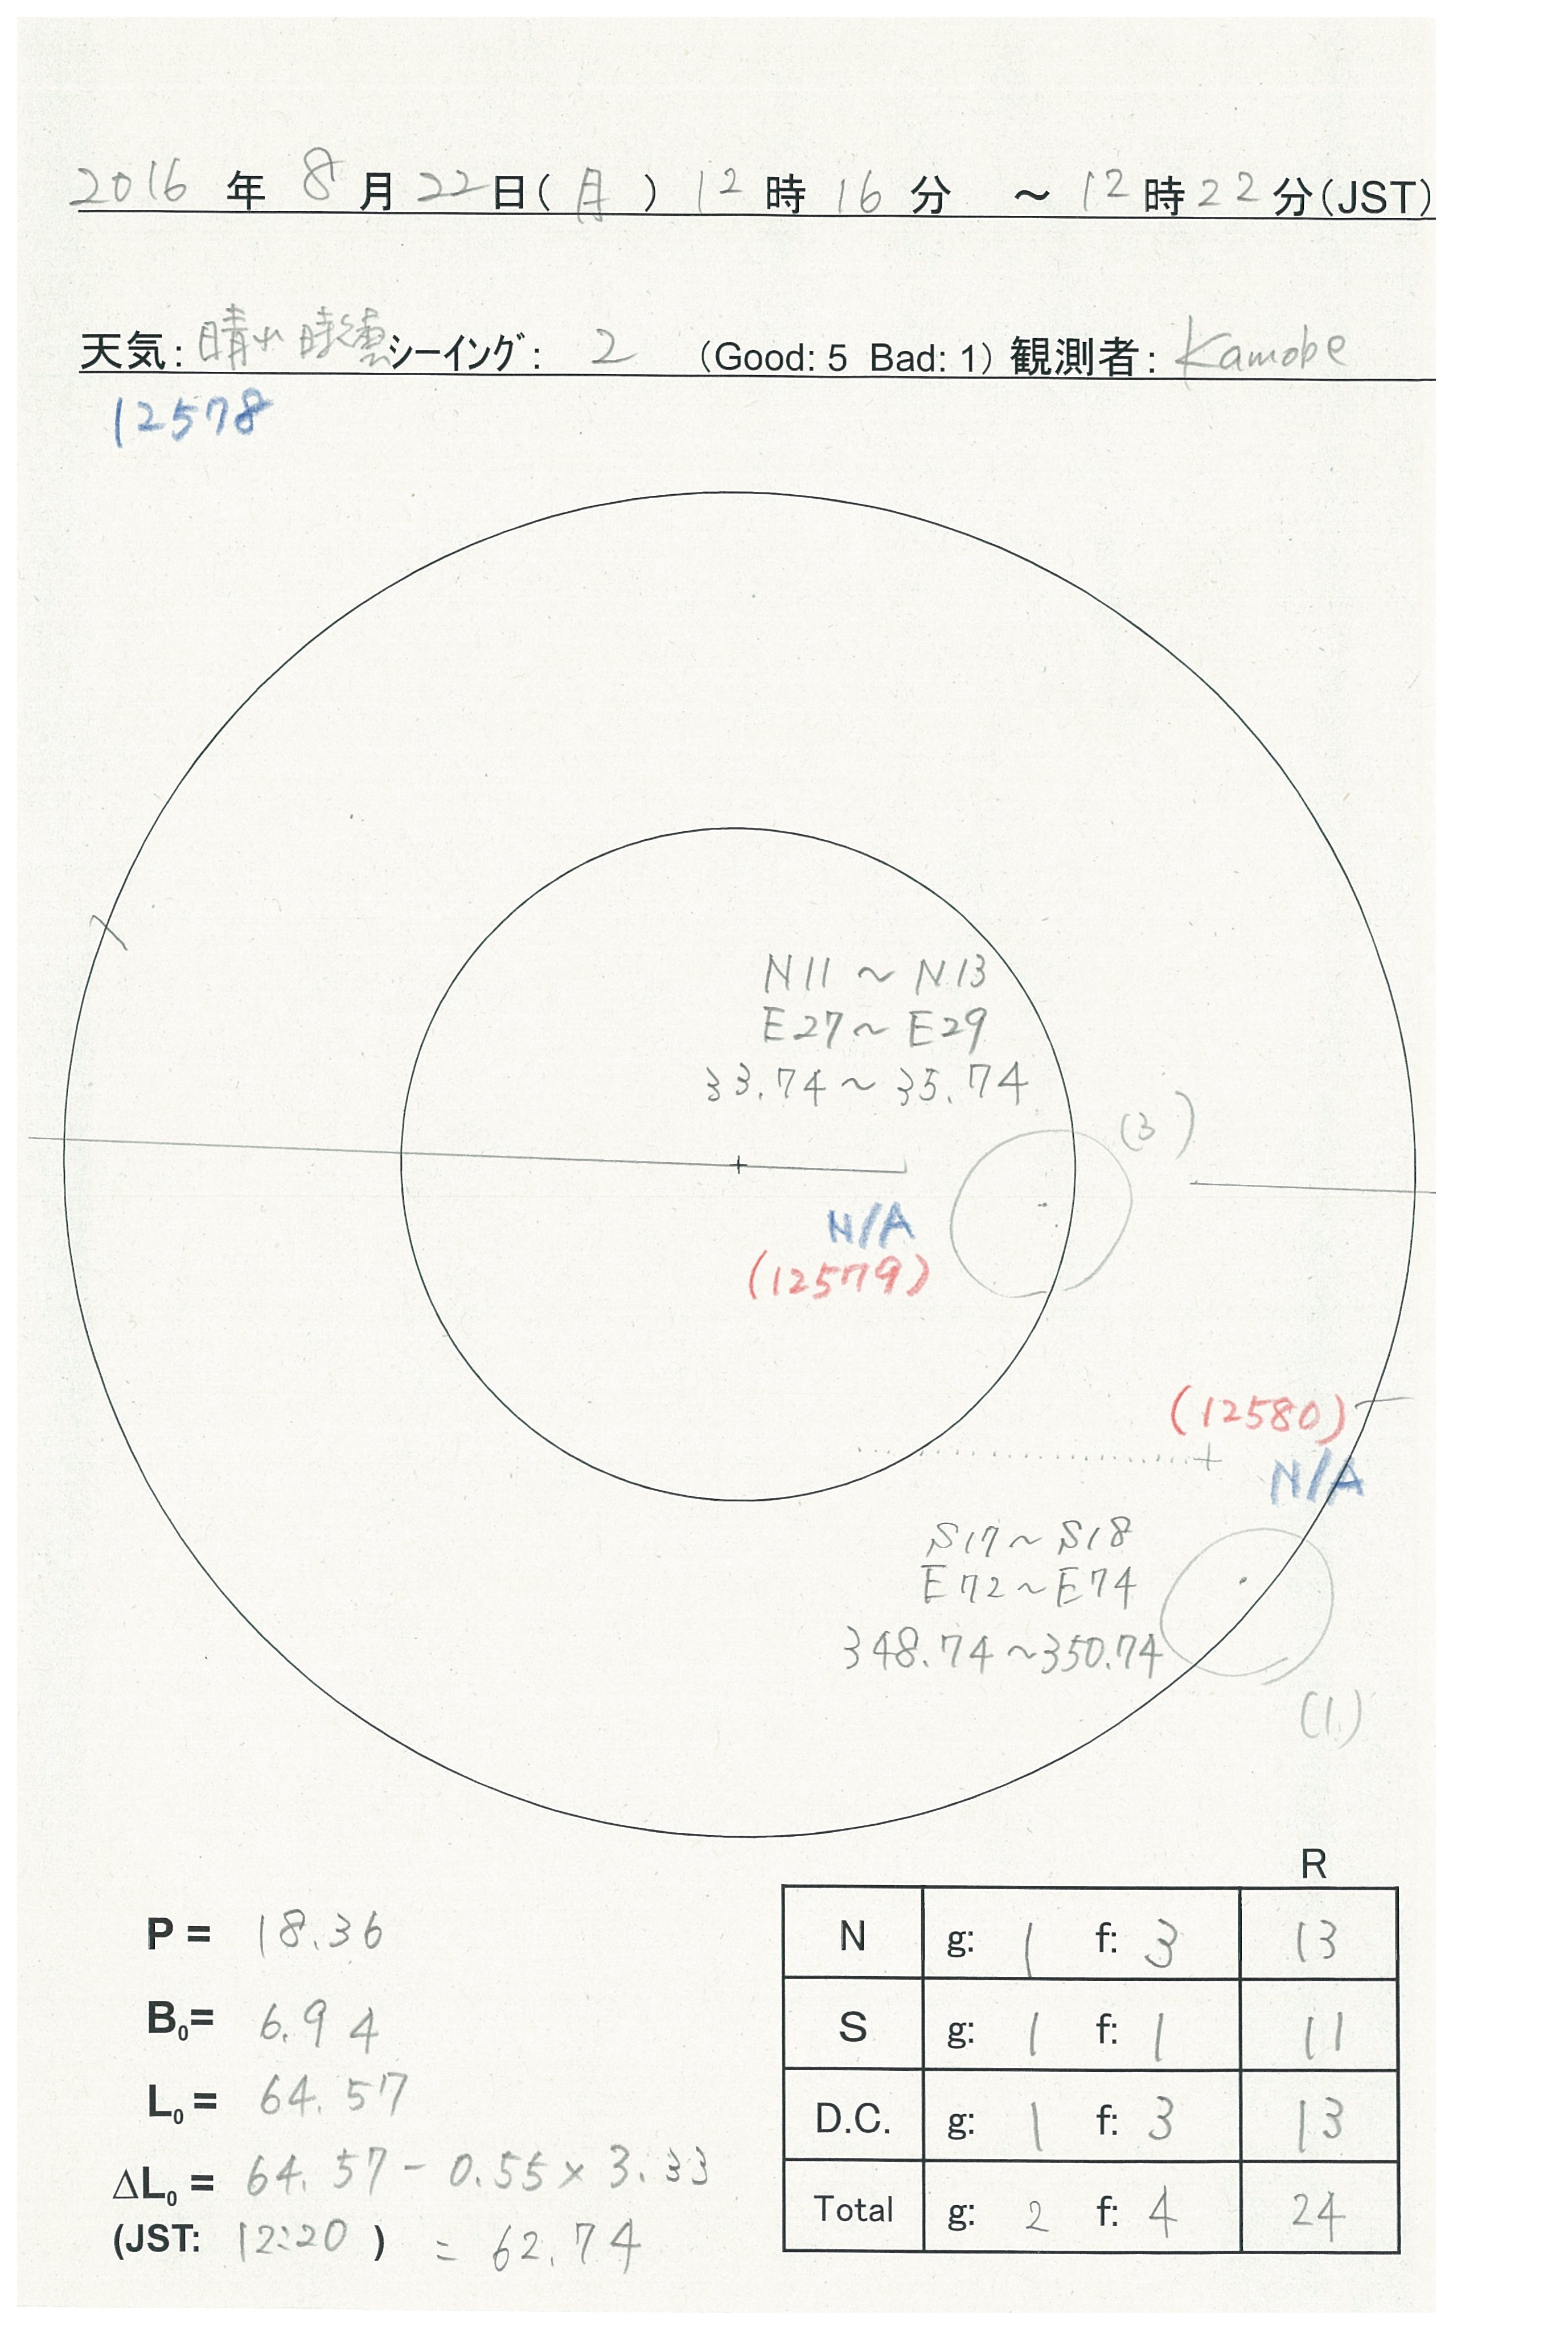 2016 年 8 月 22 日(月) 12 時 16 分 ～ 12 時 22 分(JST)
天気: 晴れ時々曇 シーイング: 2 (Good: 5 Bad: 1) 観測者: Kamobe
12578
N11～N13
E27～E29
33.74～35.74
(3)
N/A
(12579)
(12580)
N/A
S17～S18
E72～E74
348.74～350.74
(1)
R
P = 18.36
B0= 6.94
L0= 64.57
ΔL0= 64.57-0.55×3.33
(JST: 12:20) = 62.74
N g: 1 f: 3 13
S g: 1 f: 1 11
D.C. g: 1 f: 3 13
Total g: 2 f: 4 24